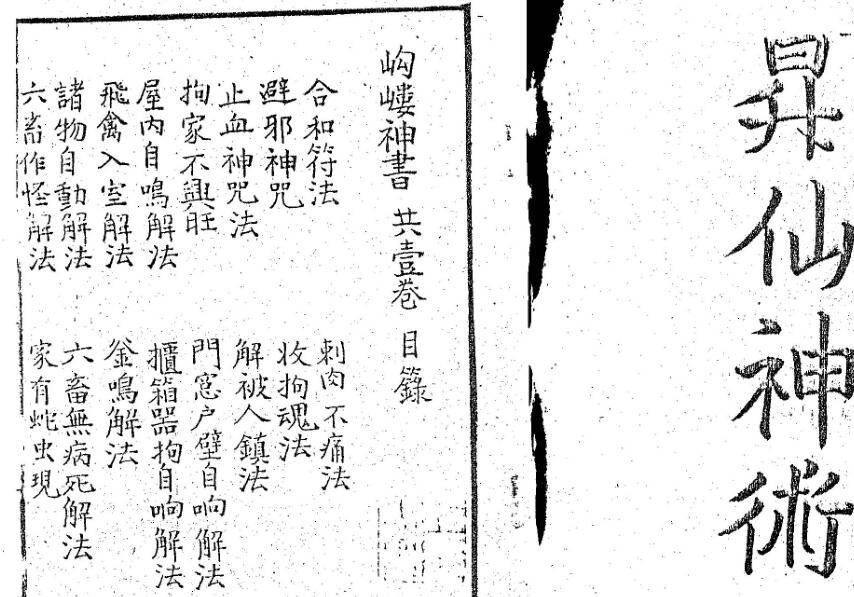 昇仙神術
岣嶁神書 共壹卷 目籙
合和符法
刺肉不痛法
避邪神咒
收拘魂法
止血神咒法
解被人鎮法
拘家不興旺
門窓户壁自响解法
屋内自鳴解法
櫃箱器拘自响解法
飛禽入室解法
釜鳴解法
諸物自動解法
六畜無病死解法
六畜作怪解法
家有蛇虫現